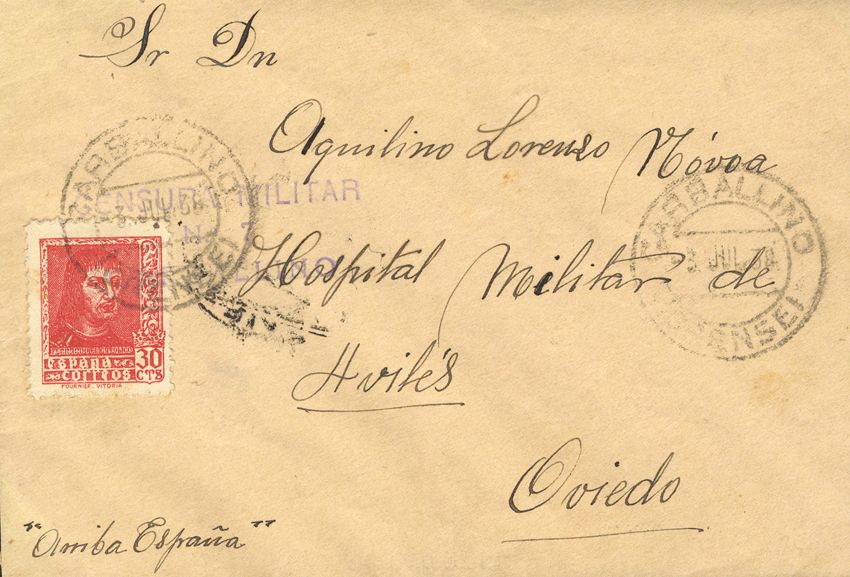 Sr Dn
Aquilino Lorenzo Nóvoa
Hospital Militar de
Avilés
Oviedo
"Arriba España"
CENSURA MILITAR
CARBALLINO
3 JUL 38
(ORENSE)
CARBALLINO
3 JUL 38
(ORENSE)
FERNANDO EL CATOLICO
ESPAÑA
CORREOS
30
CTS
FOURNIER. VITORIA